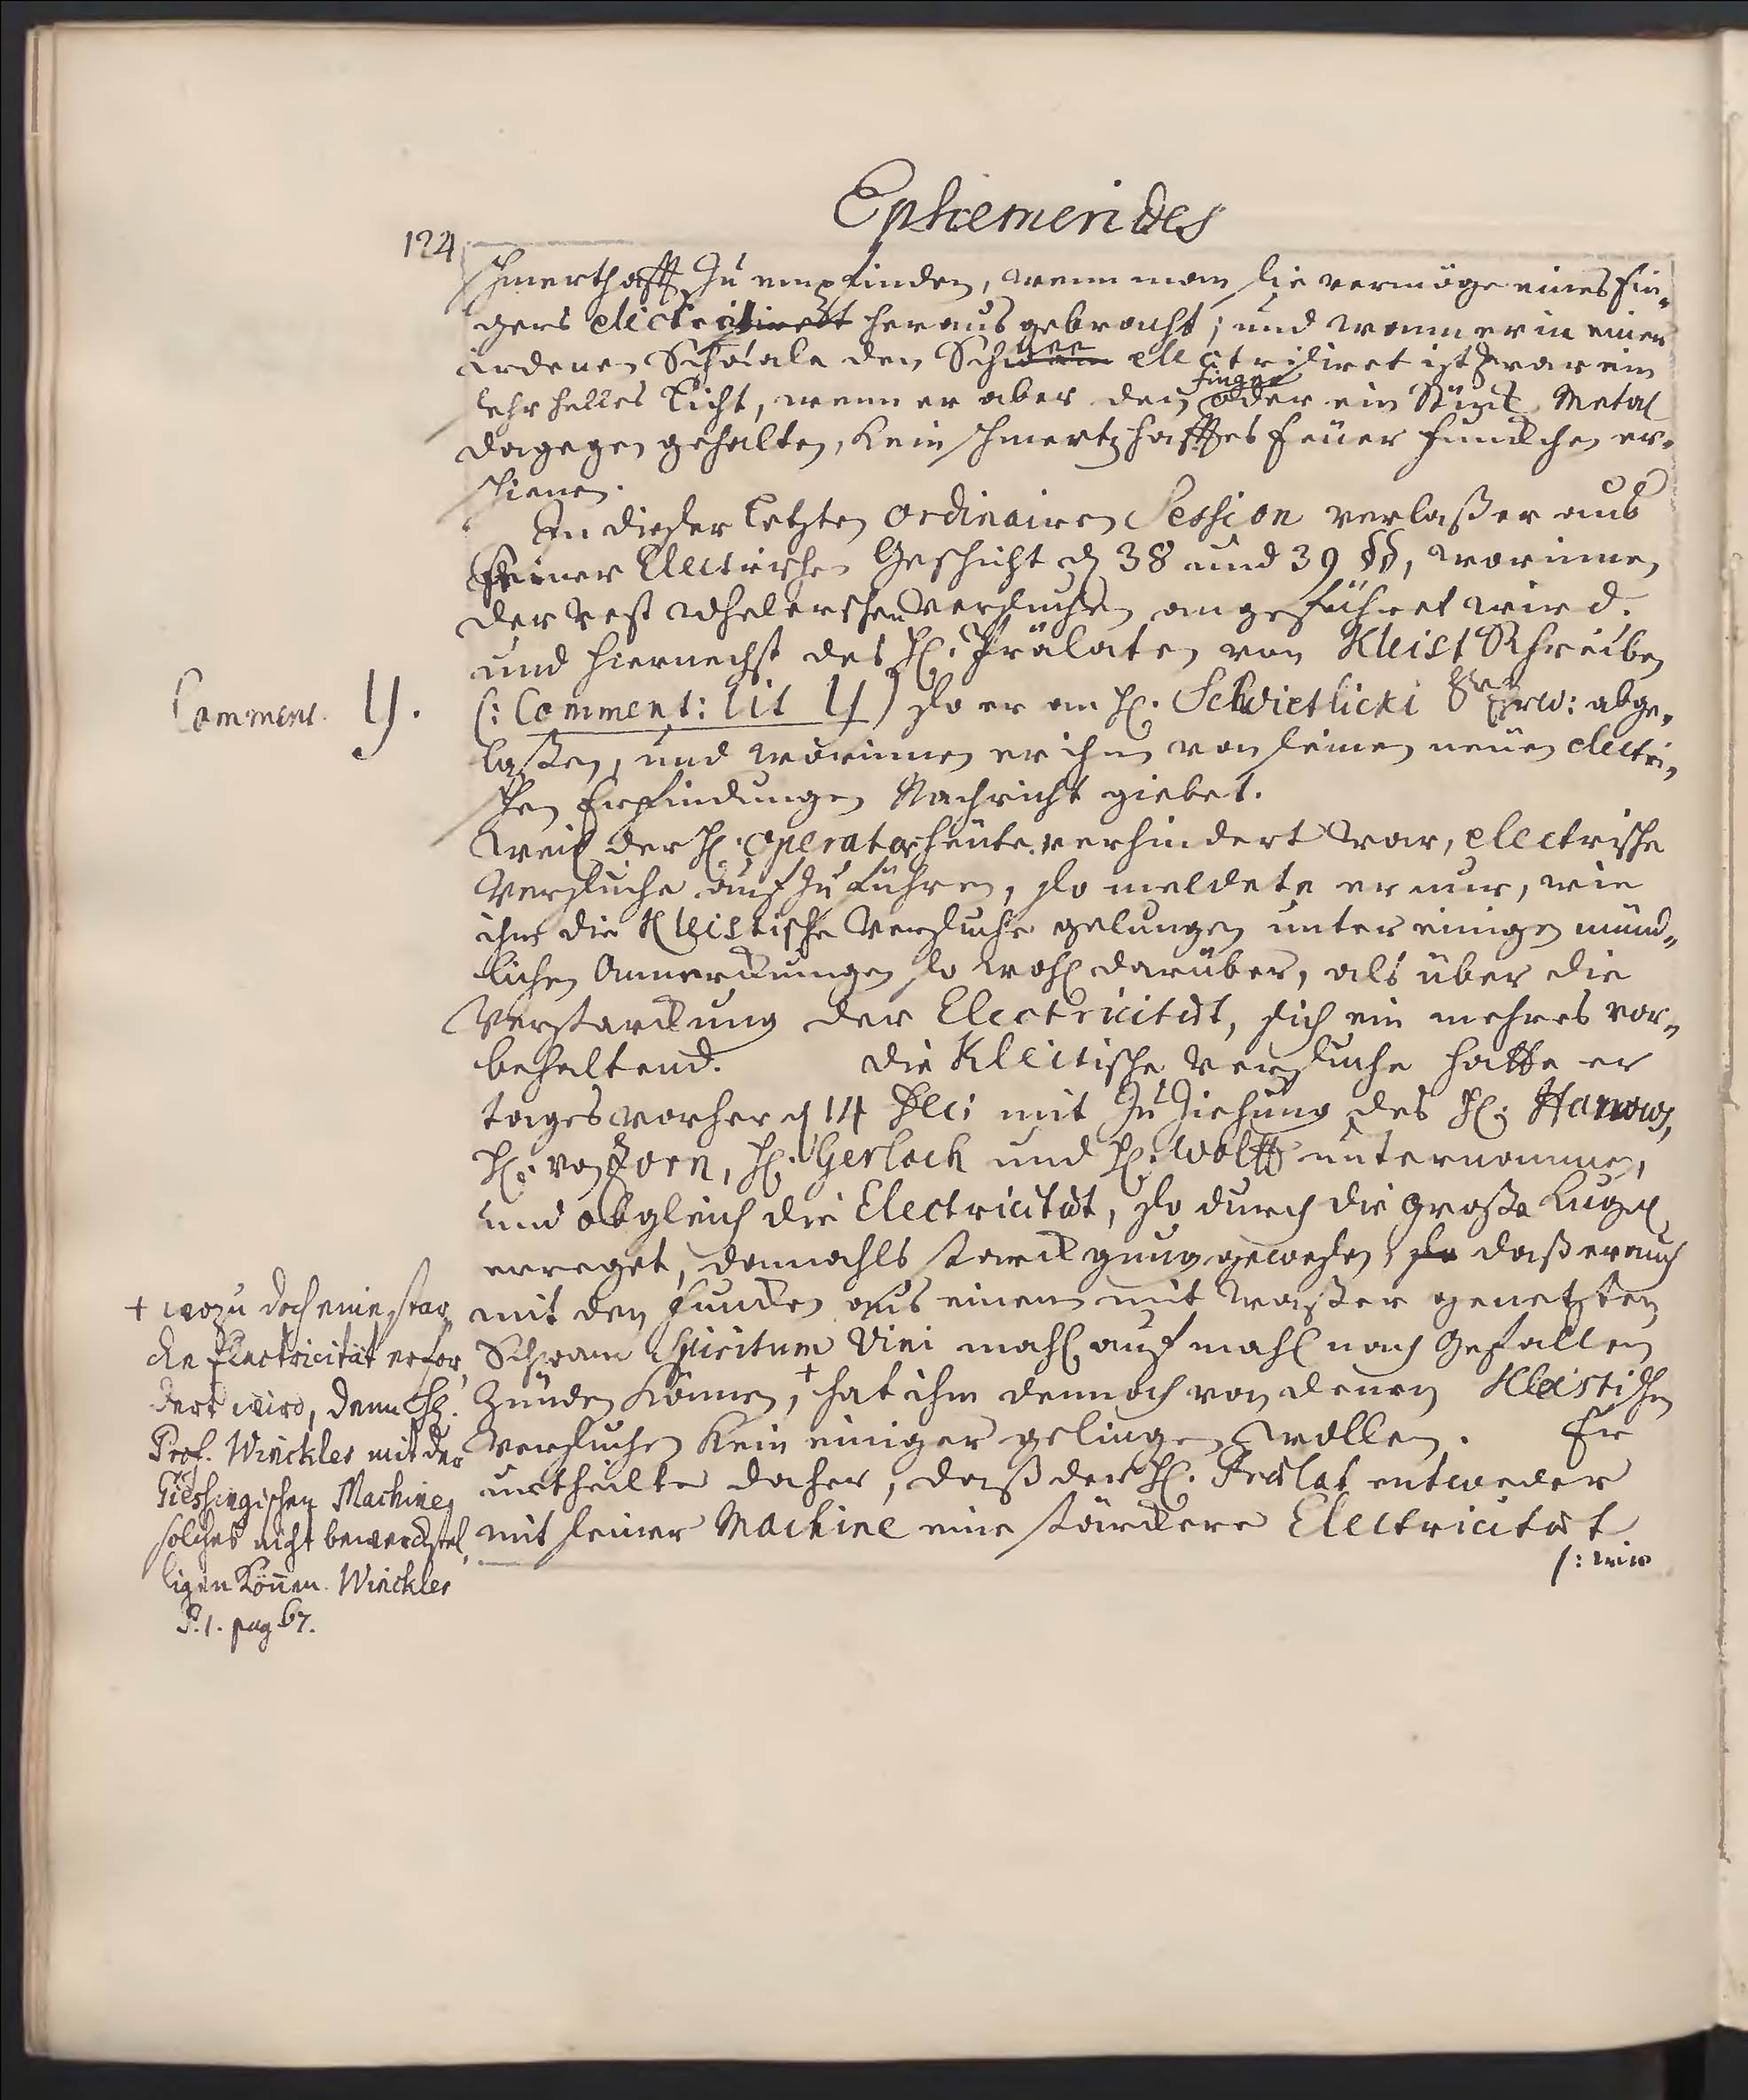 Ephemerides
124
schmertzhafft zu empfinden, wenn man sie vermöge eines Fin„
gers electrisiret heraus gebracht; und wann er in einer
irdenen Schaale den Schnee electrisiret ist zwar ein
sehr helles Licht, wenn er aber den Finger oder ein Stück Metal
dagegen gehalten, kein schmertzhafftes Feuer Funckchen er„
schienen.
In dieser letzten ordinairen Session verlaß er aus
seiner Electrischen Geschicht d 38 und 39 §§, worinnen
der Rest Whelerschen Versuchen angeführet wird.
und hiernechst des H. Prälaten von Kleist Schreiben
Comment. Y.
(: Comment: lit Y) so er an H. Schwietlicki abge„
laßen, und worinnen er ihm von seinen neuen electri„
schen Erfindungen Nachricht giebet.
Weil der H. Operator heute verhindert war, electrische
Versuche aufzuführen, so meldete er nur, wie
ihm die Kleistische Versuche gelungen unter einigen münd„
lichen Anmerckungen so wohl darüber, als über die
Verstarckung der Electricität, sich ein mehres vor„
behaltend. Die Kleistische Versuche hatte er
tages vorher d 14 Dec: mit Zuziehung des H. Hanows,
H. von Zorn, H. Gerlach und H. Wolff unternommen,
und obgleich die Electricität, so durch die große Kugel
erreget, damahls starck gnug gewesen, so daß er auch
mit den Funcken aus einem mit Waßer genetzten
Schwam Spiritum Vini mahl auf mahl nach Gefallen
zünden können,+ hat ihm dennoch von denen Kleistischen
Versuchen kein einiger gelingen wollen. Er
urtheilte daher, daß der H. Prälat entweder
mit seiner Machine eine stärckere Electricität
(: wie
+ wozu doch eine star„
cke Electricität erfor„
dert wird, denn H.
Prof. Winckler mit der
Gießingischen Machine
solches nicht bewerckstel„
ligen können. Winckler
P. 1. pag 67.